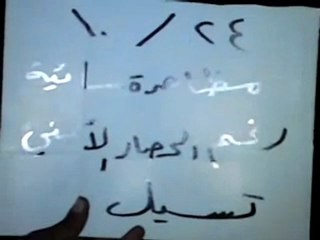 ٢٤ / ١٠
مظاهرة مسائية
رغم الحصار الأمني
تسيل